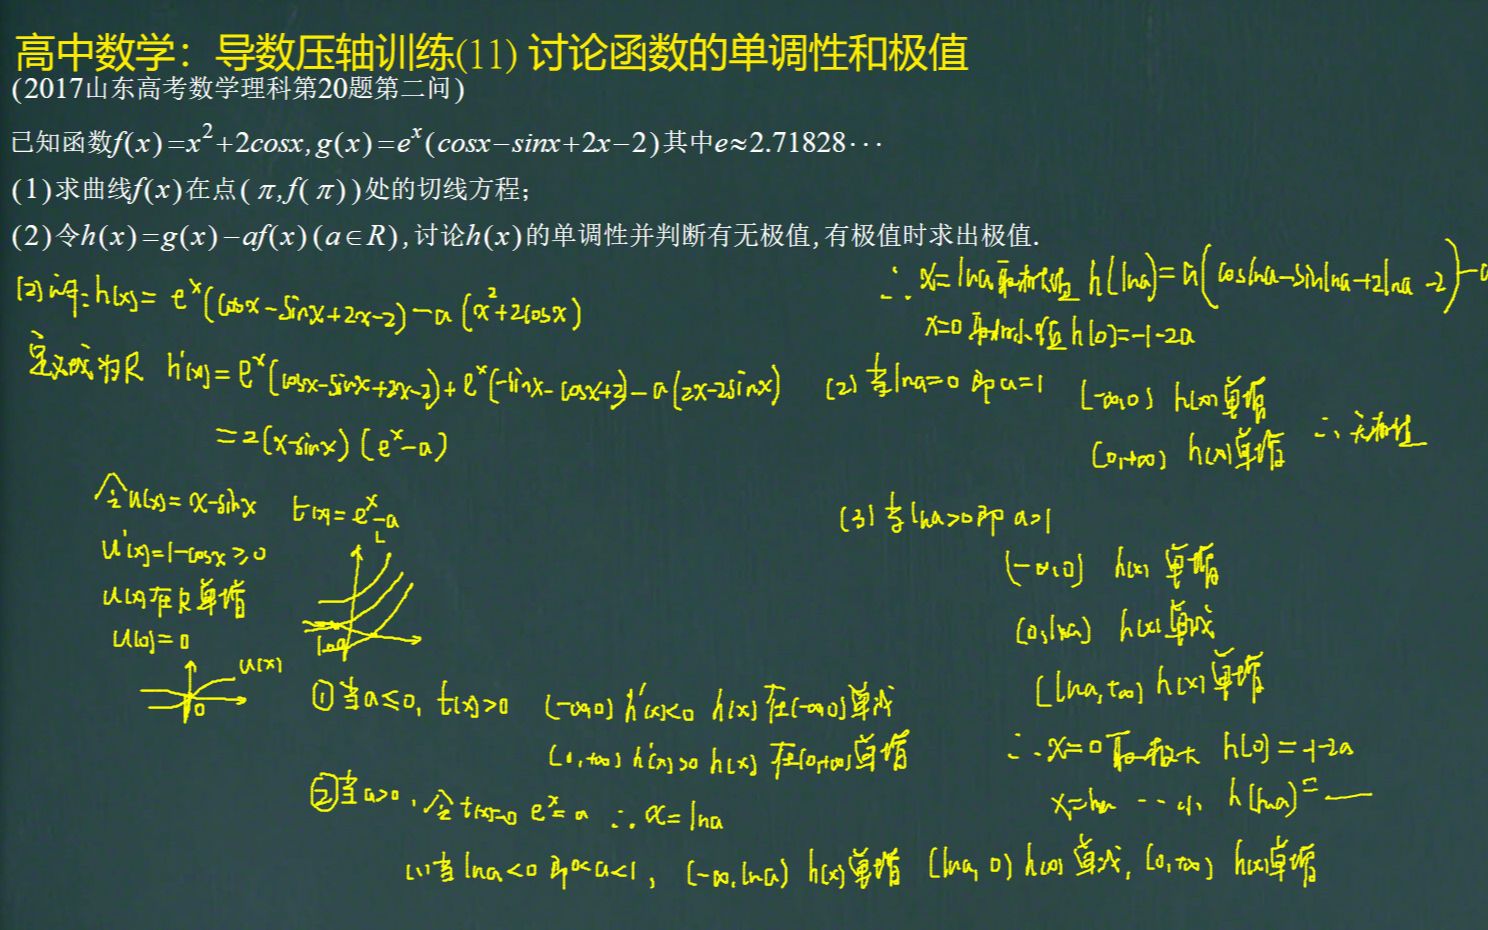 高中数学：导数压轴训练(11) 讨论函数的单调性和极值
(2017山东高考数学理科第20题第二问)
已知函数f(x)=x²+2cosx,g(x)=eˣ(cosx-sinx+2x-2)其中e≈2.71828···
(1)求曲线f(x)在点(π,f(π))处的切线方程;
(2)令h(x)=g(x)-af(x)(a∈R),讨论h(x)的单调性并判断有无极值,有极值时求出极值.
(2)问: h(x)= eˣ(cosx-sinx+2x-2)-a(x²+2cosx)
定义域为R h'(x)=eˣ(cosx-sinx+2x-2)+eˣ(-sinx-cosx+2)-a(2x-2sinx)
=2(x-sinx)(eˣ-a)
令u(x)=x-sinx t(x)=eˣ-a
u'(x)=1-cosx≥0
u(x)在R单增
u(0)=0
u(x)
0
lna
①当a≤0, t(x)>0 (-∞,0) h'(x)<0 h(x)在(-∞,0)单减
(0,+∞) h'(x)>0 h(x)在(0,+∞)单增
②当a>0, 令t(x)=0 eˣ=a ∴x=lna
(1)当lna<0即0<a<1, (-∞,lna) h(x)单增 (lna,0) h(x)单减, (0,+∞) h(x)单增
∴x=lna取极大值 h(lna)=a(coslna-sinlna+2lna-2)-a
x=0取极小值h(0)=-1-2a
(2)当lna=0即a=1 (-∞,0) h(x)单增
(0,+∞) h(x)单增 ∴无极值
(3)当lna>0即a>1
(-∞,0) h(x)单增
(0,lna) h(x)单减
(lna,+∞) h(x)单增
∴x=0取极大 h(0)=-1-2a
x=lna ··· 小 h(lna)=—